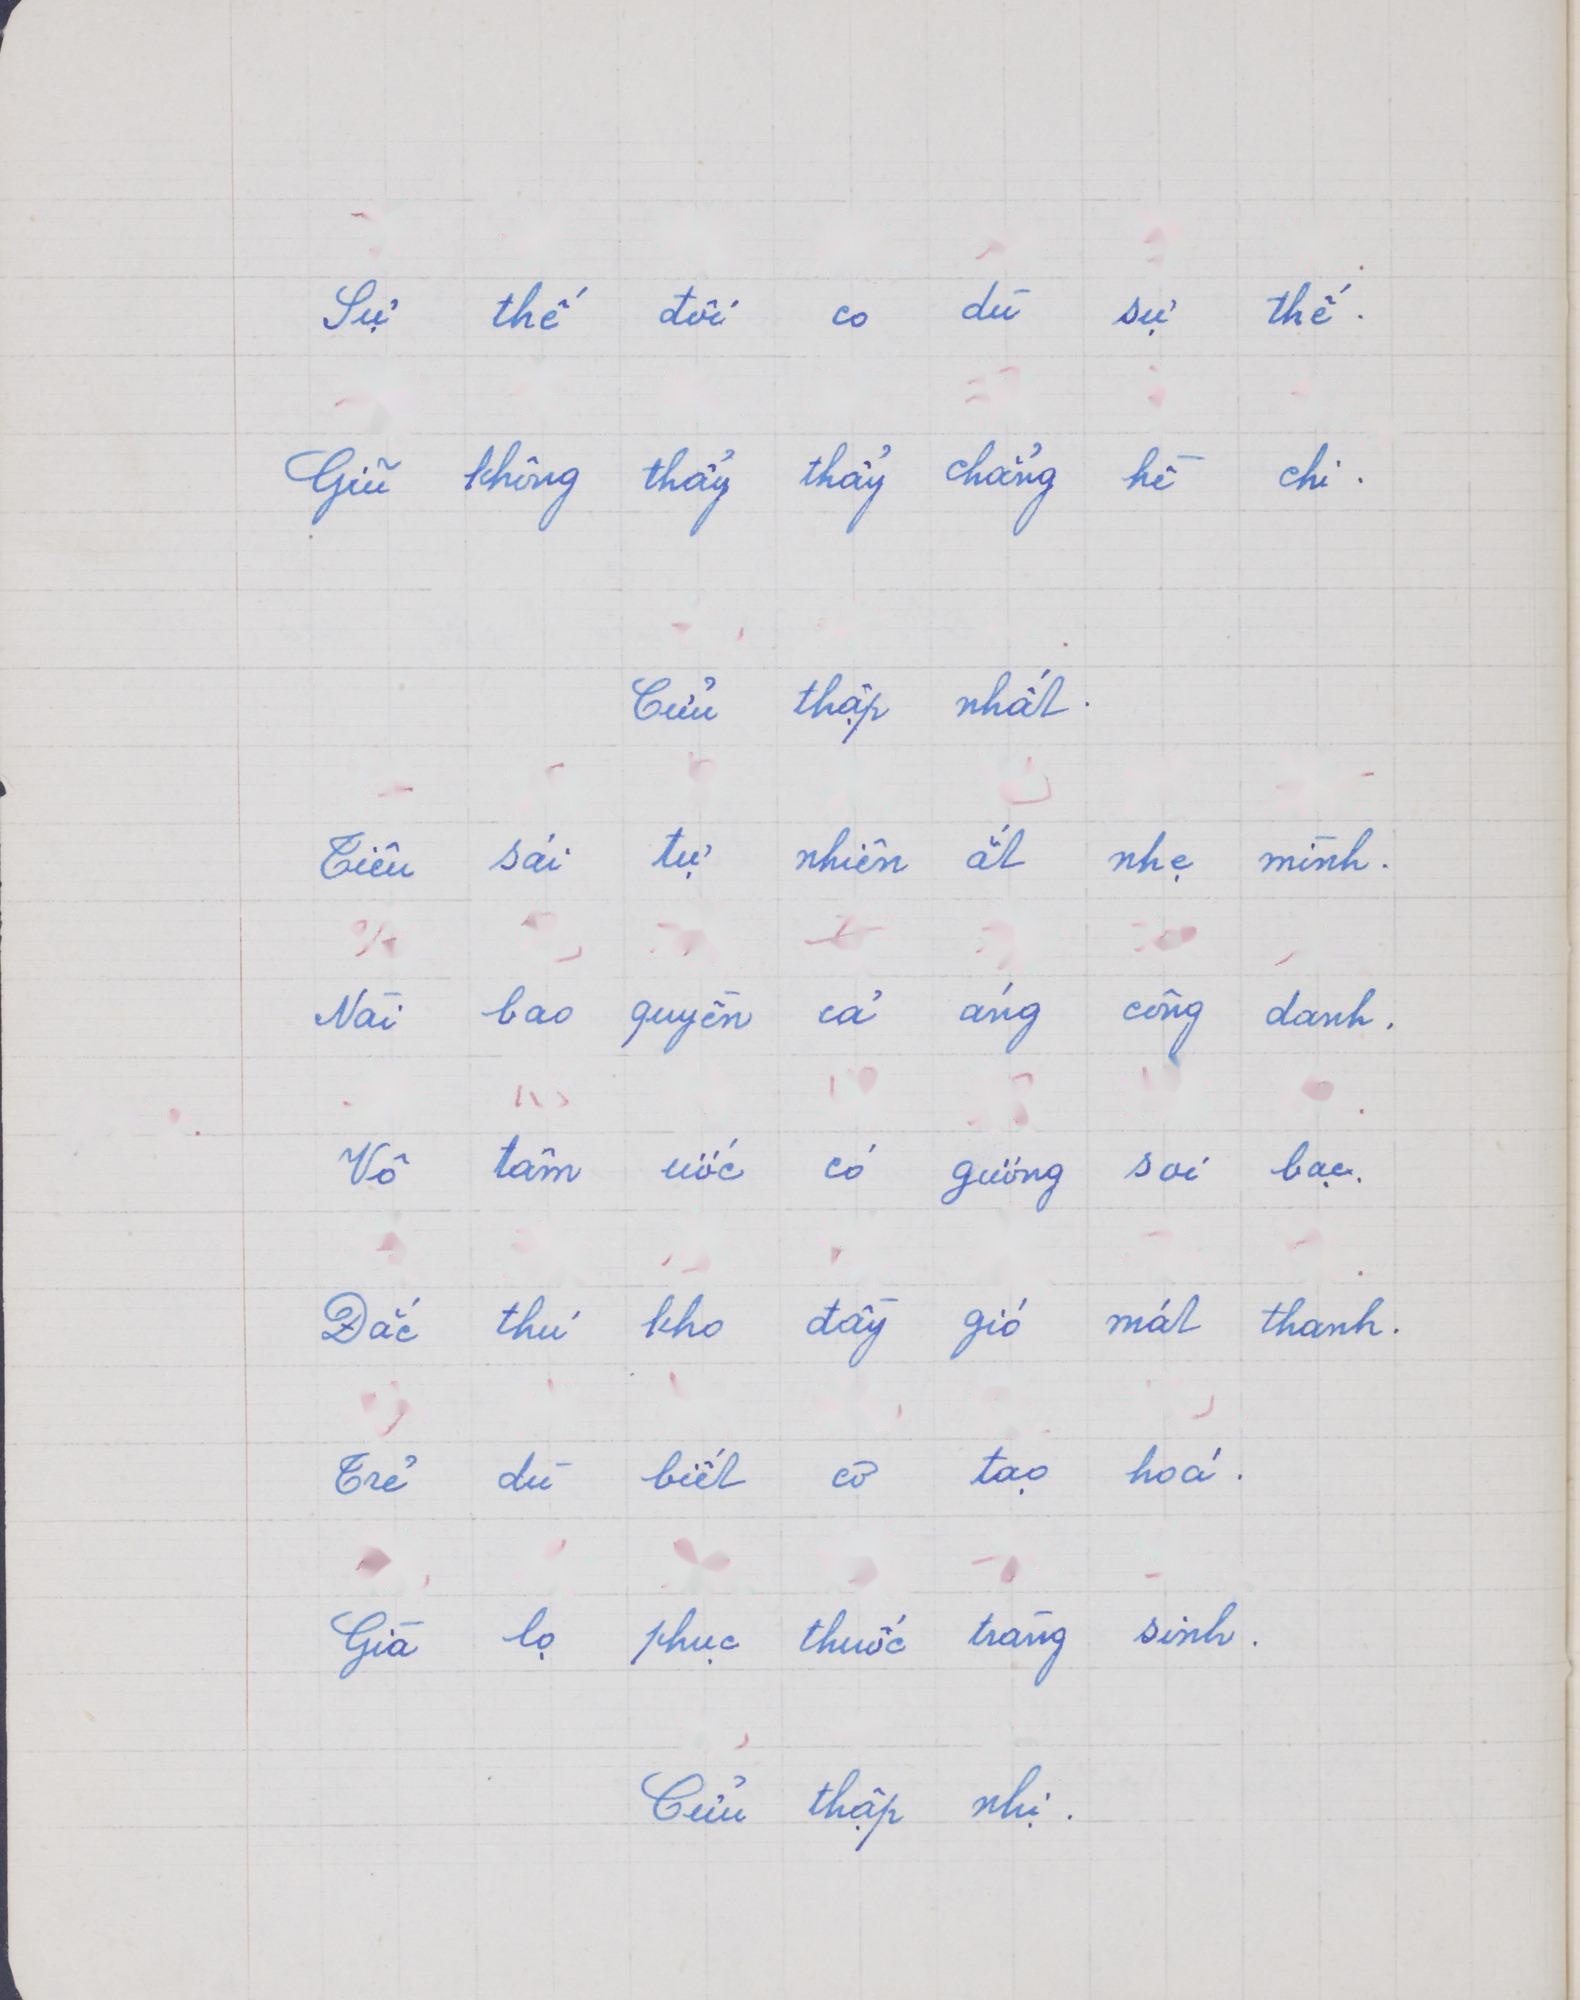 Sự thế đôi co dù sự thế.
Giữ không thẩy thẩy chẳng hề chi.
Cửu thập nhất.
Tiêu sái tự nhiên ắt nhẹ mình.
Nài bao quyền cả áng công danh.
Vô tâm ước có gương soi bạc.
Đắc thú kho đầy gió mát thanh.
Trẻ dù biết cơ tạo hoá.
Già lọ phục thuốc tràng sinh.
Cửu thập nhị.